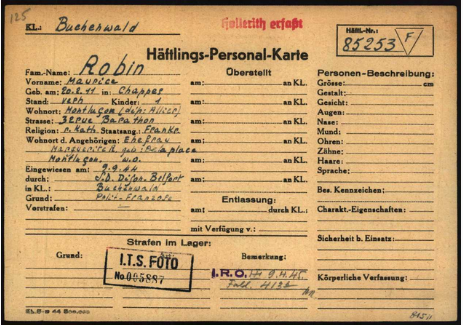 125
Hollerith erfaßt
KL.: Buchenwald
Häftl.-Nr.:
85253 F
Häftlings-Personal-Karte
Fam.-Name: Robin
Vorname: Maurice
Geb. am: 20.2.11 in: Chappes
Stand: verh Kinder: 1
Wohnort: Montluçon
Strasse: Barathon
Religion: r. Kath. Staatsang.: Franke
Wohnort d. Angehörigen: Ehefrau
Marguerite R. geb.:
Montluçon, w.o.
Eingewiesen am: 9.9.44
durch: Belfort
in KL.: Buchenwald
Grund: Polit.-Franzose
Vorstrafen: —
Überstellt
am: an KL.
am: an KL.
am: an KL.
am: an KL.
am: an KL.
am: an KL.
Entlassung:
am: durch KL.:
mit Verfügung v.:
Personen-Beschreibung:
Grösse: cm
Gestalt:
Gesicht:
Augen:
Nase:
Mund:
Ohren:
Zähne:
Haare:
Sprache:
Bes. Kennzeichen:
Charakt.-Eigenschaften:
Sicherheit b. Einsatz:
Körperliche Verfassung:
Strafen im Lager:
Grund: Bemerkung:
I.T.S. FOTO
No. 005887
I.R.O.
4122